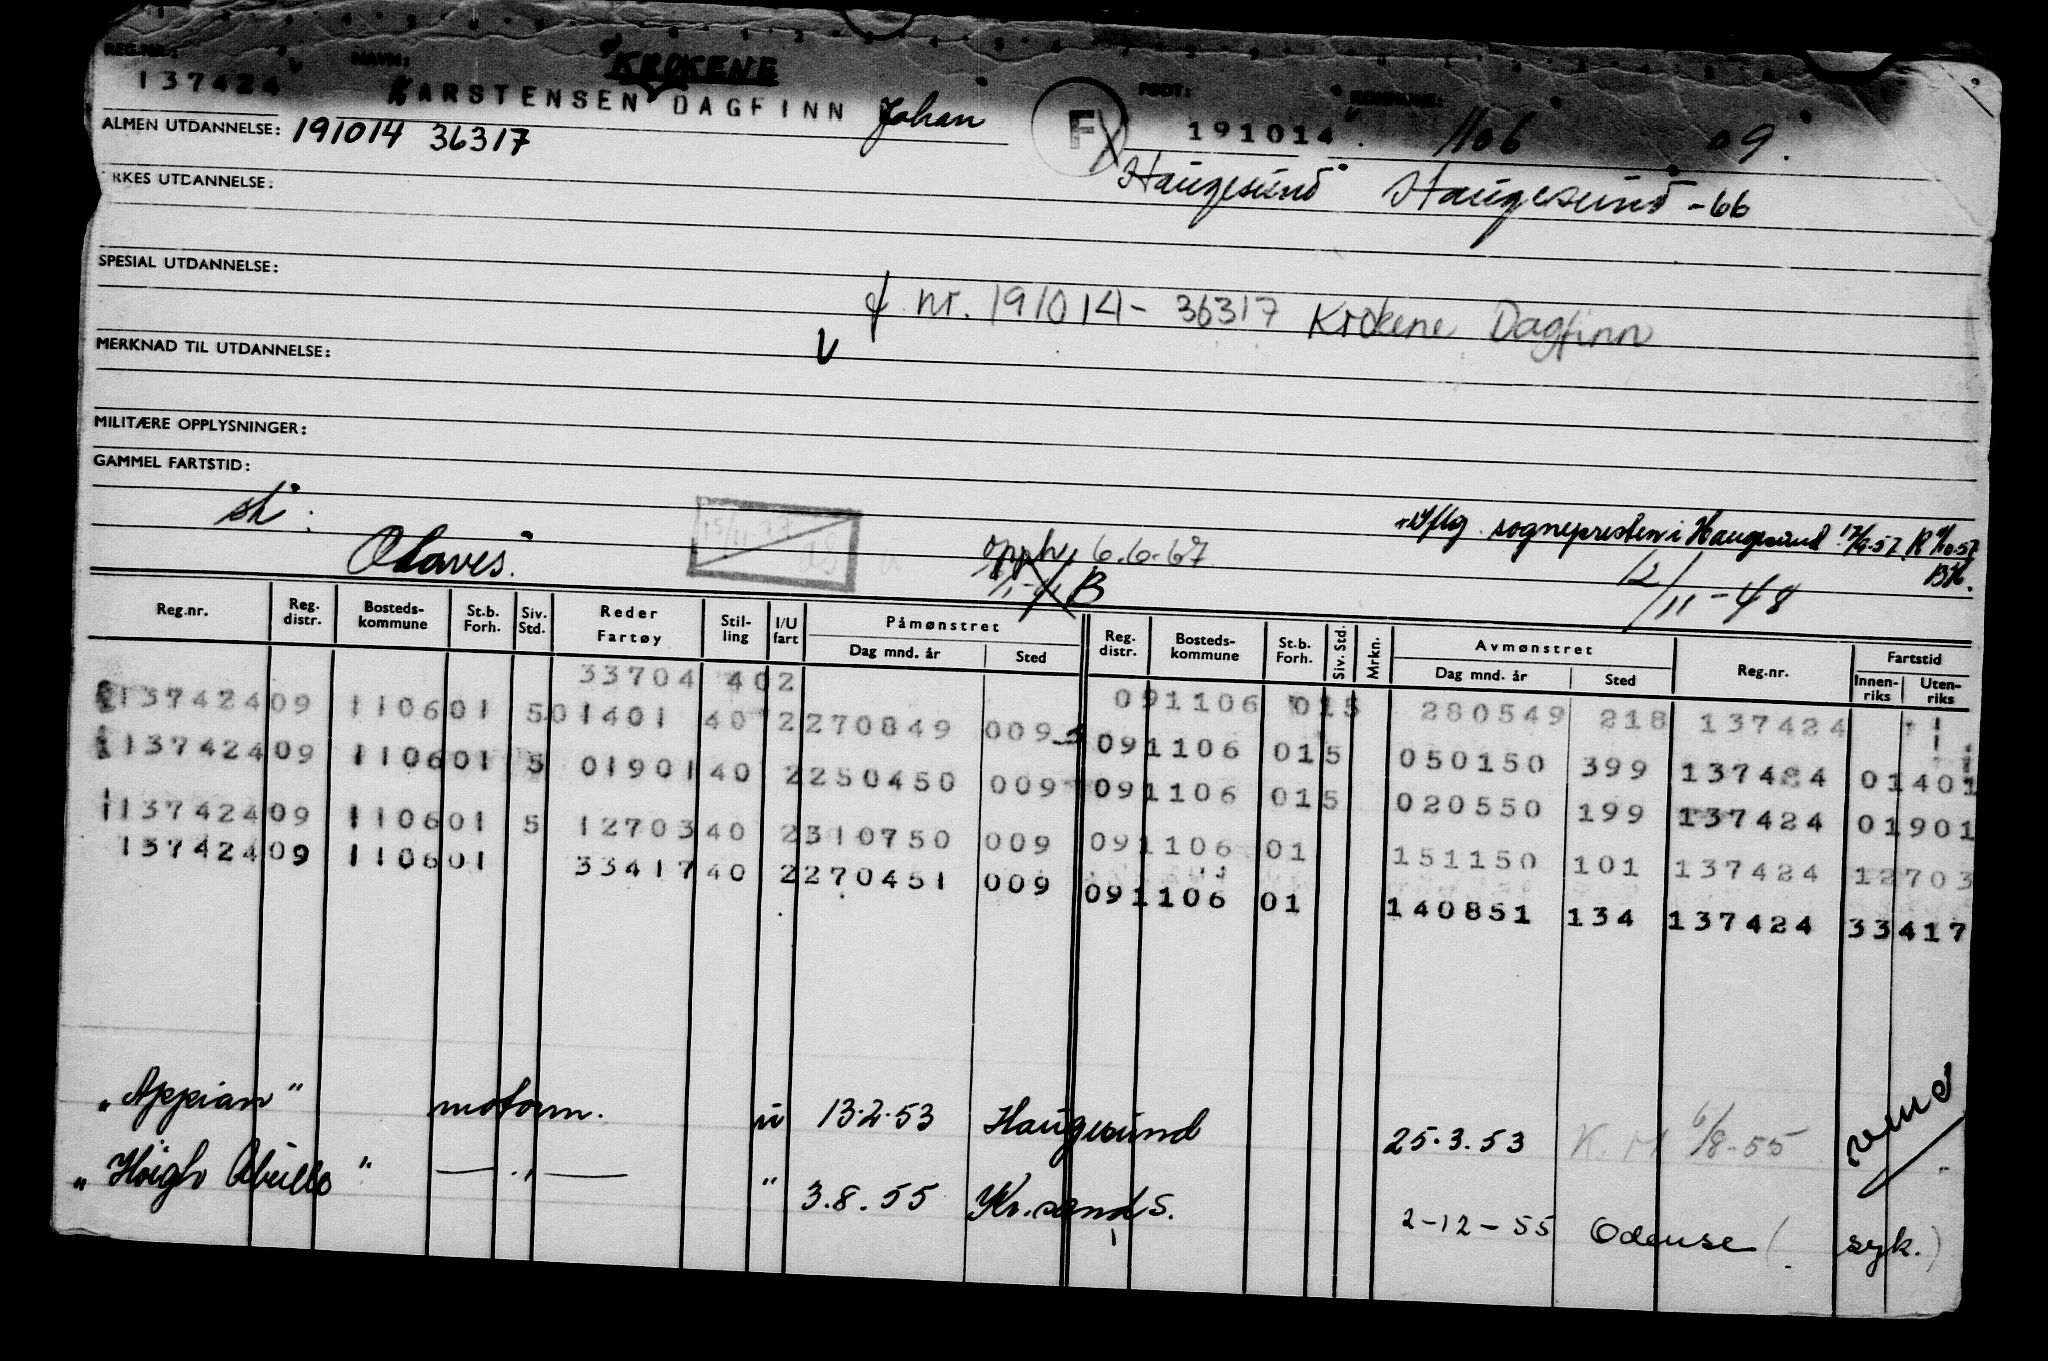 REG.NR.: NAVN: KROKENE FØDT:
137424 KARSTENSEN DAGFINN Johan F 191014 1106 09.
ALMEN UTDANNELSE: 191014 36317
Haugesund Haugesund -66
RKES UTDANNELSE:
SPESIAL UTDANNELSE:
nr. 191014- 36317 Krokene Dagfinn
MERKNAD TIL UTDANNELSE:
MILITÆRE OPPLYSNINGER:
GAMMEL FARTSTID:
15/11-77
Iflg. sognepresten i Haugesund
opph. 6.6.67
B
12/11-48
Reg.nr. Reg. distr. Bosteds-kommune St.b. Forh. Siv. Std. Reder Fartøy Stil-ling I/U fart Påmønstret Dag mnd. år Sted Reg. distr. Bosteds-kommune St.b. Forh. Siv. Std. Mrkn. Avmønstret Dag mnd. år Sted Reg.nr. Fartstid Innen-riks Uten-riks
33704 402 091106 015 280549 218 137424
137424 09 1106 01 5 01401 40 2 270849 009 091106 015 050150 399 137424 01401
137424 09 1106 01 5 01901 40 2 250450 009 091106 015 020550 199 137424 01901
137424 09 1106 01 5 12703 40 2 310750 009 091106 01 151150 101 137424 12703
137424 09 1106 01 33417 40 2 270451 009 091106 01 140851 134 137424 33417
"Appian" motorm. u 13.2.53 Haugesund 25.3.53 K.M 6/8-55
" — " — " 3.8.55 Kr.sand S. 2-12-55 Odense (syk.)